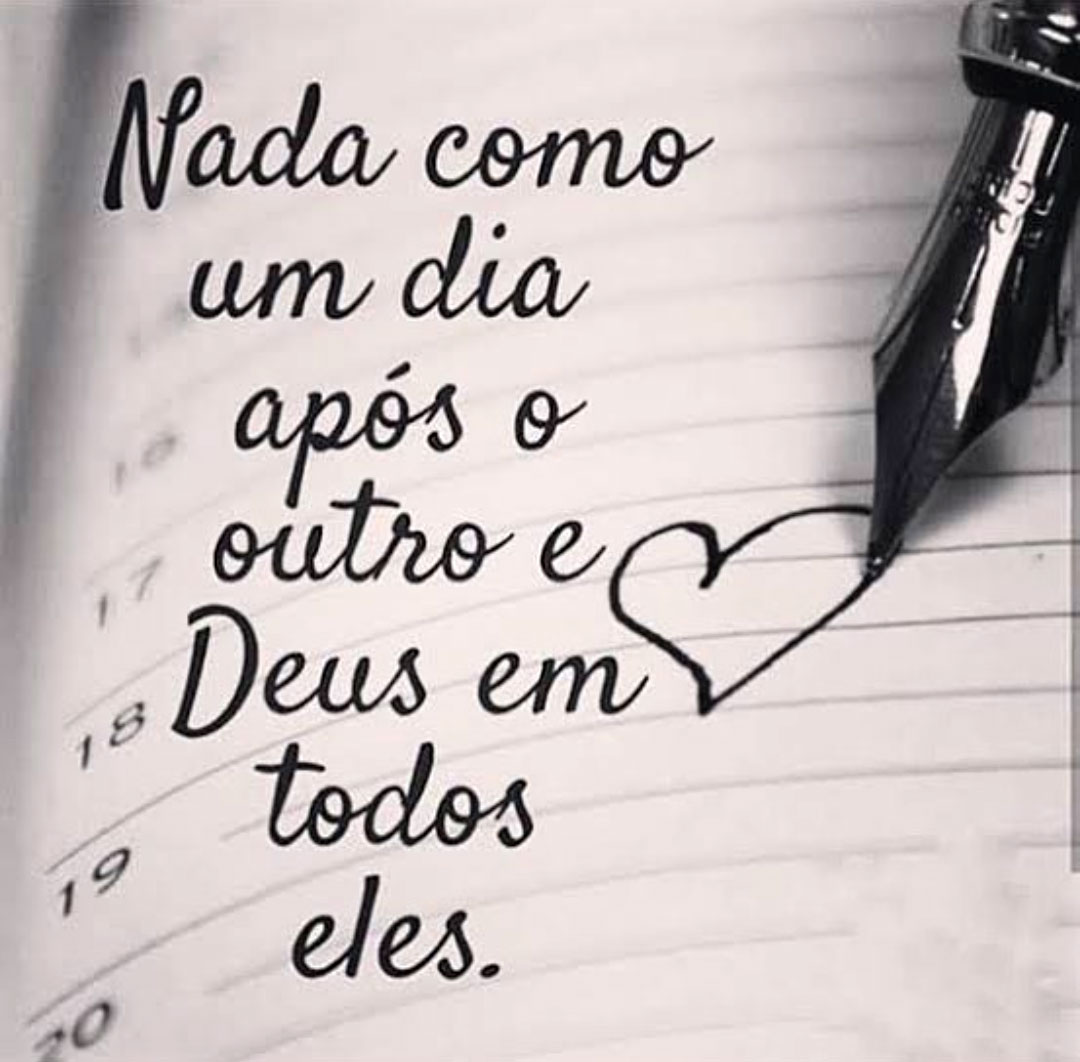 Nada como
um dia
após o
outro e
Deus em
todos
eles.
17
18
19
20